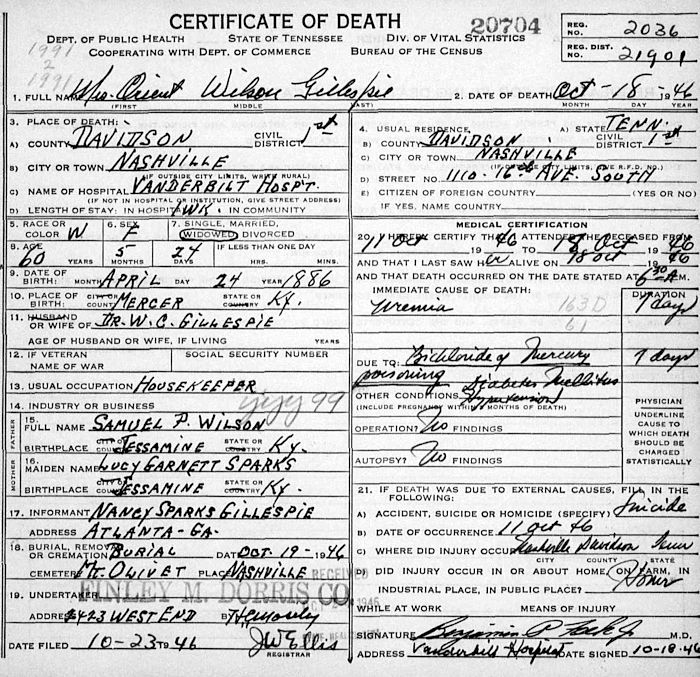 CERTIFICATE OF DEATH
20704
DEPT. OF PUBLIC HEALTH STATE OF TENNESSEE DIV. OF VITAL STATISTICS
COOPERATING WITH DEPT. OF COMMERCE BUREAU OF THE CENSUS
REG. NO. 2036
REG. DIST. NO. 21901
1991
2
1991
1. FULL NAME Mrs. Orient Wilson Gillespie
(FIRST) MIDDLE (LAST)
2. DATE OF DEATH Oct-18-1946
MONTH DAY YEAR
3. PLACE OF DEATH:
A) COUNTY DAVIDSON CIVIL DISTRICT 1st
B) CITY OR TOWN NASHVILLE
(IF OUTSIDE CITY LIMITS, WRITE RURAL)
C) NAME OF HOSPITAL VANDERBILT HOSPT.
(IF NOT IN HOSPITAL OR INSTITUTION, GIVE STREET ADDRESS)
D) LENGTH OF STAY: IN HOSPITAL 1 WK. IN COMMUNITY
4. USUAL RESIDENCE A) STATE TENN.
B) COUNTY DAVIDSON CIVIL DISTRICT 1st
C) CITY OR TOWN NASHVILLE
(IF OUTSIDE CITY LIMITS, R.F.D. NO.)
D) STREET NO. 1110-16th AVE. SOUTH
E) CITIZEN OF FOREIGN COUNTRY (YES OR NO)
IF YES, NAME COUNTRY
5. RACE OR COLOR W 6. SEX F 7. SINGLE, MARRIED, WIDOWED, DIVORCED
8. AGE 60 YEARS 5 MONTHS 24 DAYS IF LESS THAN ONE DAY
HOURS MINUTES
9. DATE OF BIRTH: MONTH APRIL DAY 24 YEAR 1886
10. PLACE OF BIRTH: CITY OR COUNTY MERCER STATE OR COUNTRY KY.
11. HUSBAND OR WIFE OF DR. W. C. GILLESPIE
AGE OF HUSBAND OR WIFE, IF LIVING YEARS
12. IF VETERAN NAME OF WAR SOCIAL SECURITY NUMBER
13. USUAL OCCUPATION HOUSEKEEPER
14. INDUSTRY OR BUSINESS
FATHER
15. FULL NAME SAMUEL P. WILSON
BIRTHPLACE CITY OR COUNTY JESSAMINE STATE OR COUNTRY KY.
MOTHER
16. MAIDEN NAME LUCY GARNETT SPARKS
BIRTHPLACE CITY OR COUNTY JESSAMINE STATE OR COUNTRY KY.
17. INFORMANT NANCY SPARKS GILLESPIE
ADDRESS ATLANTA-GA.
18. BURIAL, REMOVAL OR CREMATION BURIAL DATE OCT. 19-1946
CEMETERY MT. OLIVET PLACE NASHVILLE
RECEIVED
FINLEY M. DORRIS CO.
19. UNDERTAKER
ADDRESS 2423 WEST END BY
DATE FILED 10-23 1946 J W Ellis
REGISTRAR
MEDICAL CERTIFICATION
20. I HEREBY CERTIFY THAT I ATTENDED THE DECEASED FROM
11 Oct 1946 TO 18 Oct 1946
AND THAT I LAST SAW her ALIVE ON 18 Oct 1946
AND THAT DEATH OCCURRED ON THE DATE STATED AT 6:30 A.M.
IMMEDIATE CAUSE OF DEATH: DURATION
Uremia 163D 7 days
61
DUE TO: Bichloride of Mercury 7 days
poisoning
OTHER CONDITIONS Diabetes Mellitus
Hypertension
(INCLUDE PREGNANCY WITHIN 3 MONTHS OF DEATH)
OPERATION? No FINDINGS
AUTOPSY? No FINDINGS
PHYSICIAN
UNDERLINE
CAUSE TO
WHICH DEATH
SHOULD BE
CHARGED
STATISTICALLY
21. IF DEATH WAS DUE TO EXTERNAL CAUSES, FILL IN THE FOLLOWING:
A) ACCIDENT, SUICIDE OR HOMICIDE (SPECIFY) Suicide
B) DATE OF OCCURRENCE 11 Oct 46
C) WHERE DID INJURY OCCUR Nashville Davidson Tenn
CITY COUNTY STATE
D) DID INJURY OCCUR IN OR ABOUT HOME, ON FARM, IN
INDUSTRIAL PLACE, IN PUBLIC PLACE? Home
WHILE AT WORK MEANS OF INJURY
SIGNATURE Benjamin P. M.D.
ADDRESS Vanderbilt Hospital DATE SIGNED 10-18-46